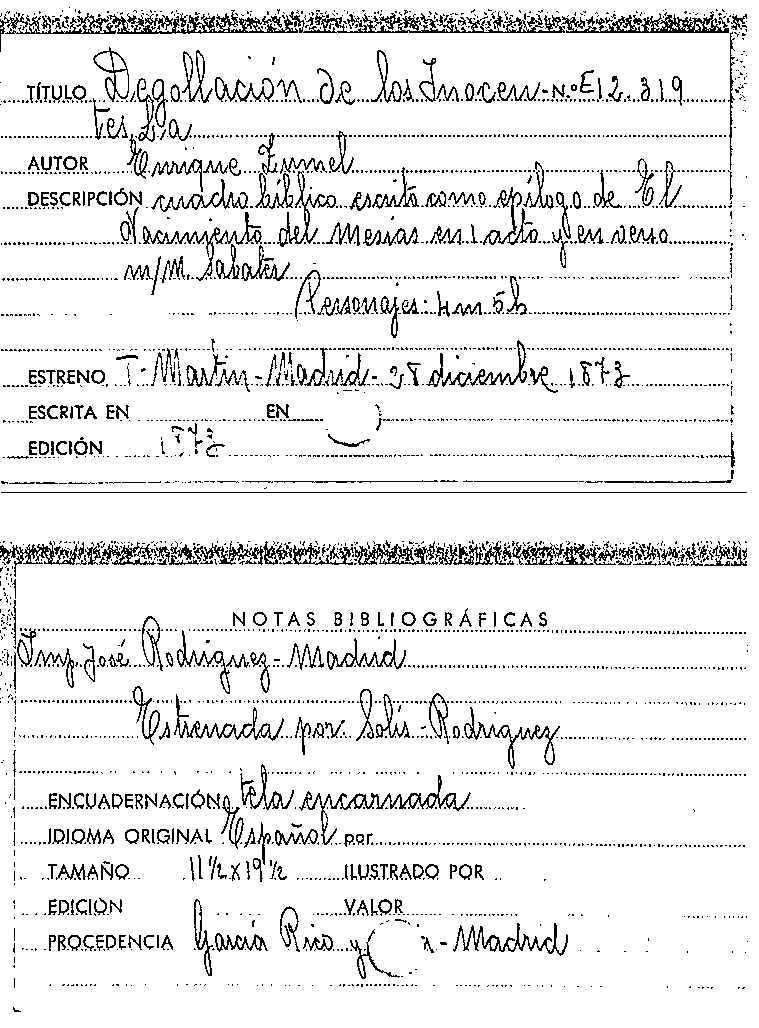 TÍTULO Degollación de los Inocen- N.º E12.319
tes, La
AUTOR Enrique Zumel
DESCRIPCIÓN cuadro bíblico escrito como epílogo de El
Nacimiento del Mesias en 1 acto y en verso
m/M. Sabater
Personajes: 4m 5h
ESTRENO T. Martin - Madrid - 28 diciembre 1873
ESCRITA EN EN
EDICIÓN 1873
NOTAS BIBLIOGRÁFICAS
Imp. José Rodriguez - Madrid
Estrenada por: Solis - Rodriguez
ENCUADERNACIÓN tela encarnada
IDIOMA ORIGINAL Español por
TAMAÑO 11 1/2 x 19 1/2 ILUSTRADO POR
EDICIÓN VALOR
PROCEDENCIA García Rico y - Madrid